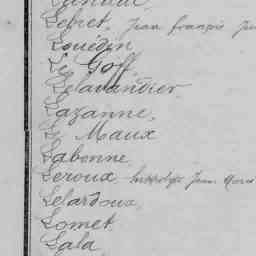 Lepret, Jean François
Louédin
Le Goff
Lelavandier
Lazanne,
Le Maux
Labonne
Leroux Hippolyte Jean Marie
Lelardoux
Lomet
Lala